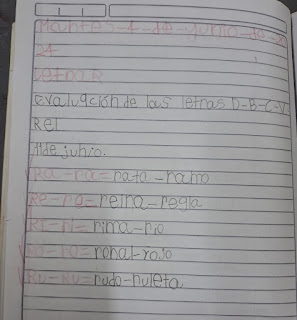 Martes-4-de-Junio-de-20
24
Letra R
evaluación de las letras D-B-C-V
REL
11 de junio.
Ra-ra=rata-ramo
Re-re=reina-regla
Ri-ri=rima-rio
Ro-ro=ronal-rojo
Ru-ru=rudo-ruleta